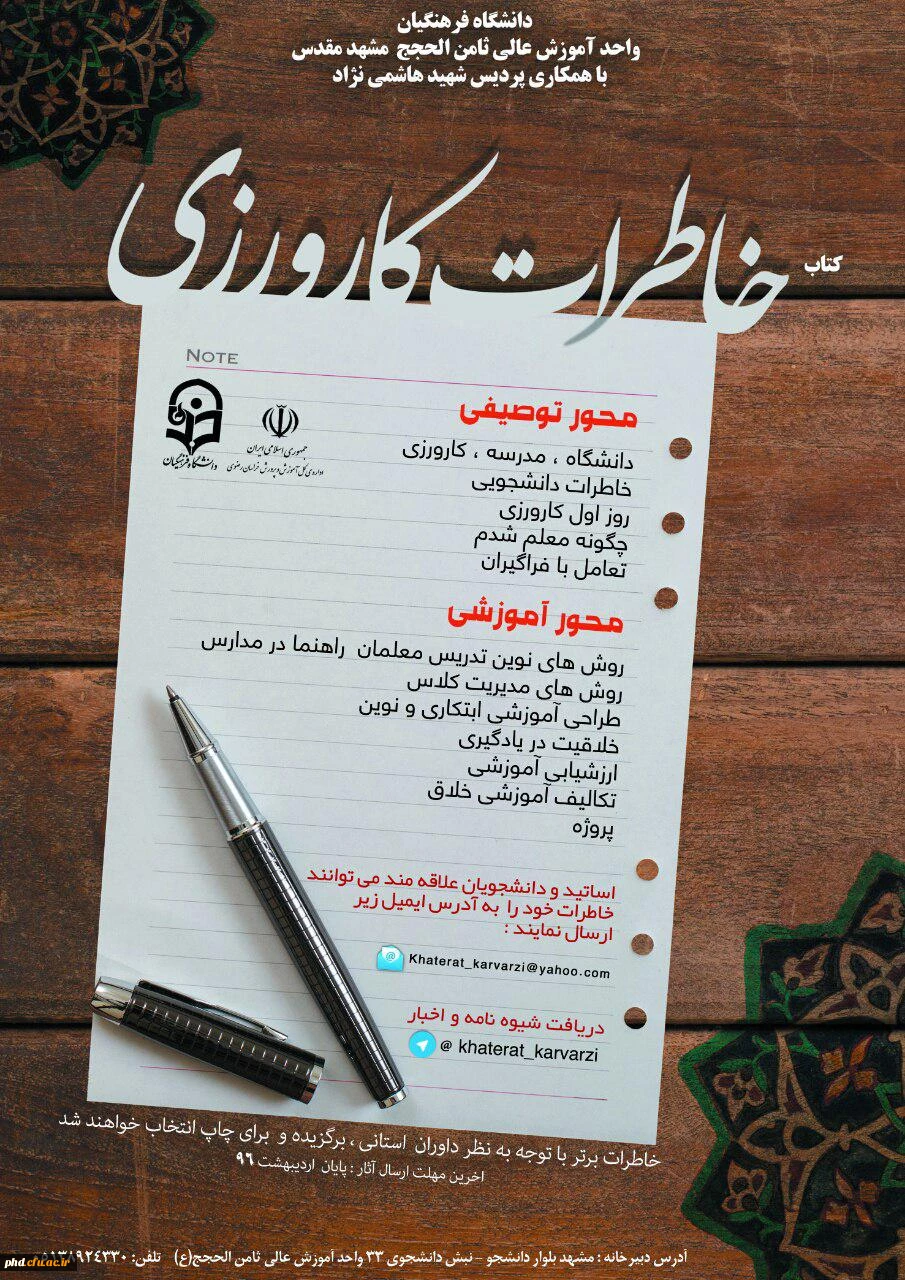 دانشگاه فرهنگیان
واحد آموزش عالی ثامن الحجج مشهد مقدس
با همکاری پردیس شهید هاشمی نژاد
کتاب
خاطرات کارورزی
NOTE
دانشگاه فرهنگیان
جمهوری اسلامی ایران
اداره‌ی کل آموزش و پرورش خراسان رضوی
محور توصیفی
دانشگاه ، مدرسه ، کارورزی
خاطرات دانشجویی
روز اول کارورزی
چگونه معلم شدم
تعامل با فراگیران
محور آموزشی
روش های نوین تدریس معلمان راهنما در مدارس
روش های مدیریت کلاس
طراحی آموزشی ابتکاری و نوین
خلاقیت در یادگیری
ارزشیابی آموزشی
تکالیف آموزشی خلاق
پروژه
اساتید و دانشجویان علاقه مند می توانند
خاطرات خود را به آدرس ایمیل زیر
ارسال نمایند :
Khaterat_karvarzi@yahoo.com
دریافت شیوه نامه و اخبار
@ khaterat_karvarzi
خاطرات برتر با توجه به نظر داوران استانی ، برگزیده و برای چاپ انتخاب خواهند شد
آخرین مهلت ارسال آثار : پایان اردیبهشت ۹۶
آدرس دبیرخانه : مشهد بلوار دانشجو - نبش دانشجوی ۳۳ واحد آموزش عالی ثامن الحجج(ع) تلفن:
phd.cfu.ac.ir